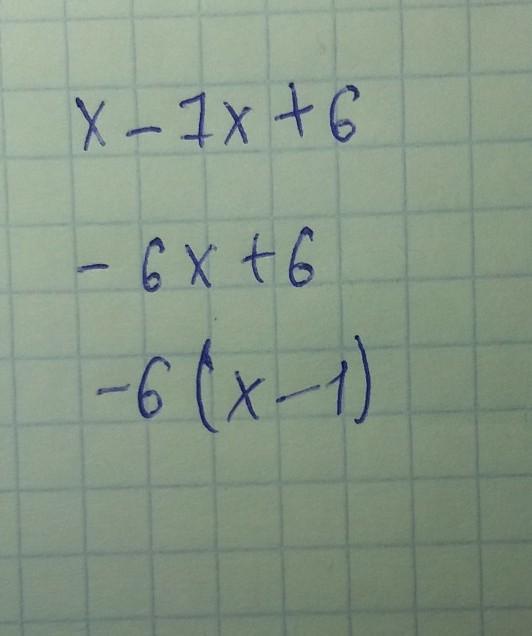 x - 7x + 6
- 6x + 6
-6 (x - 1)